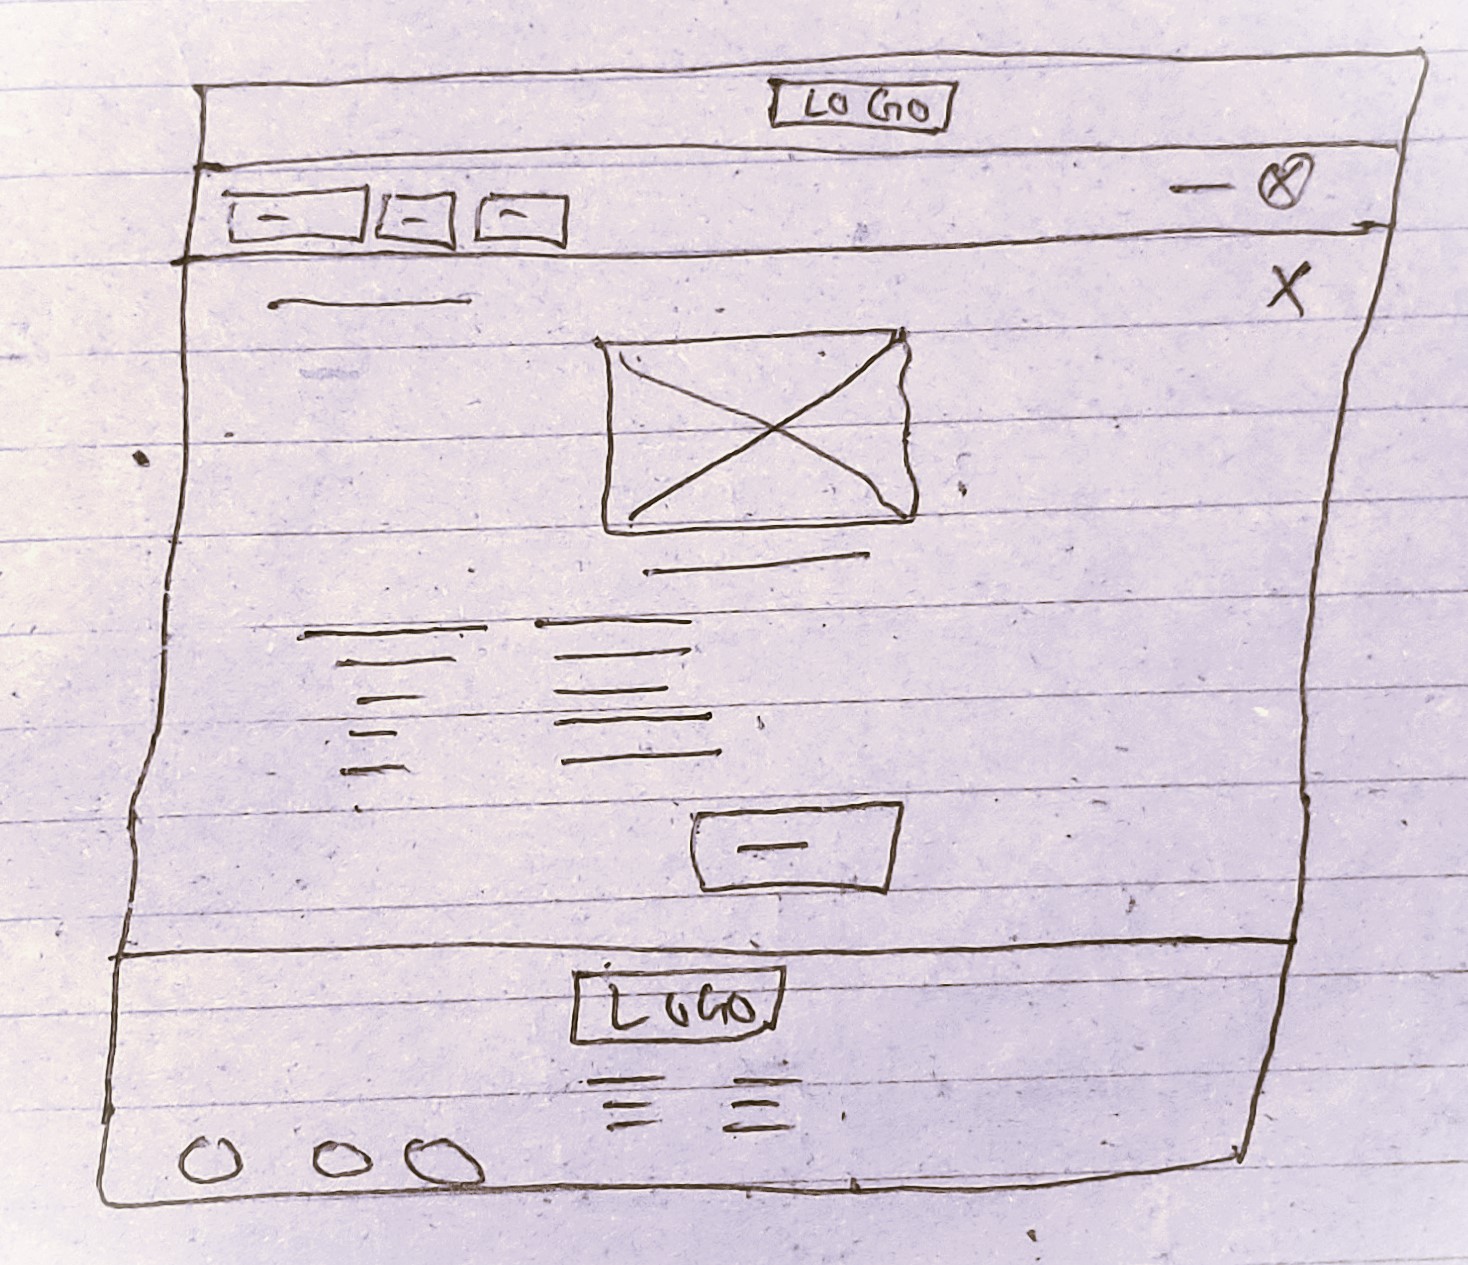 LOGO
LOGO